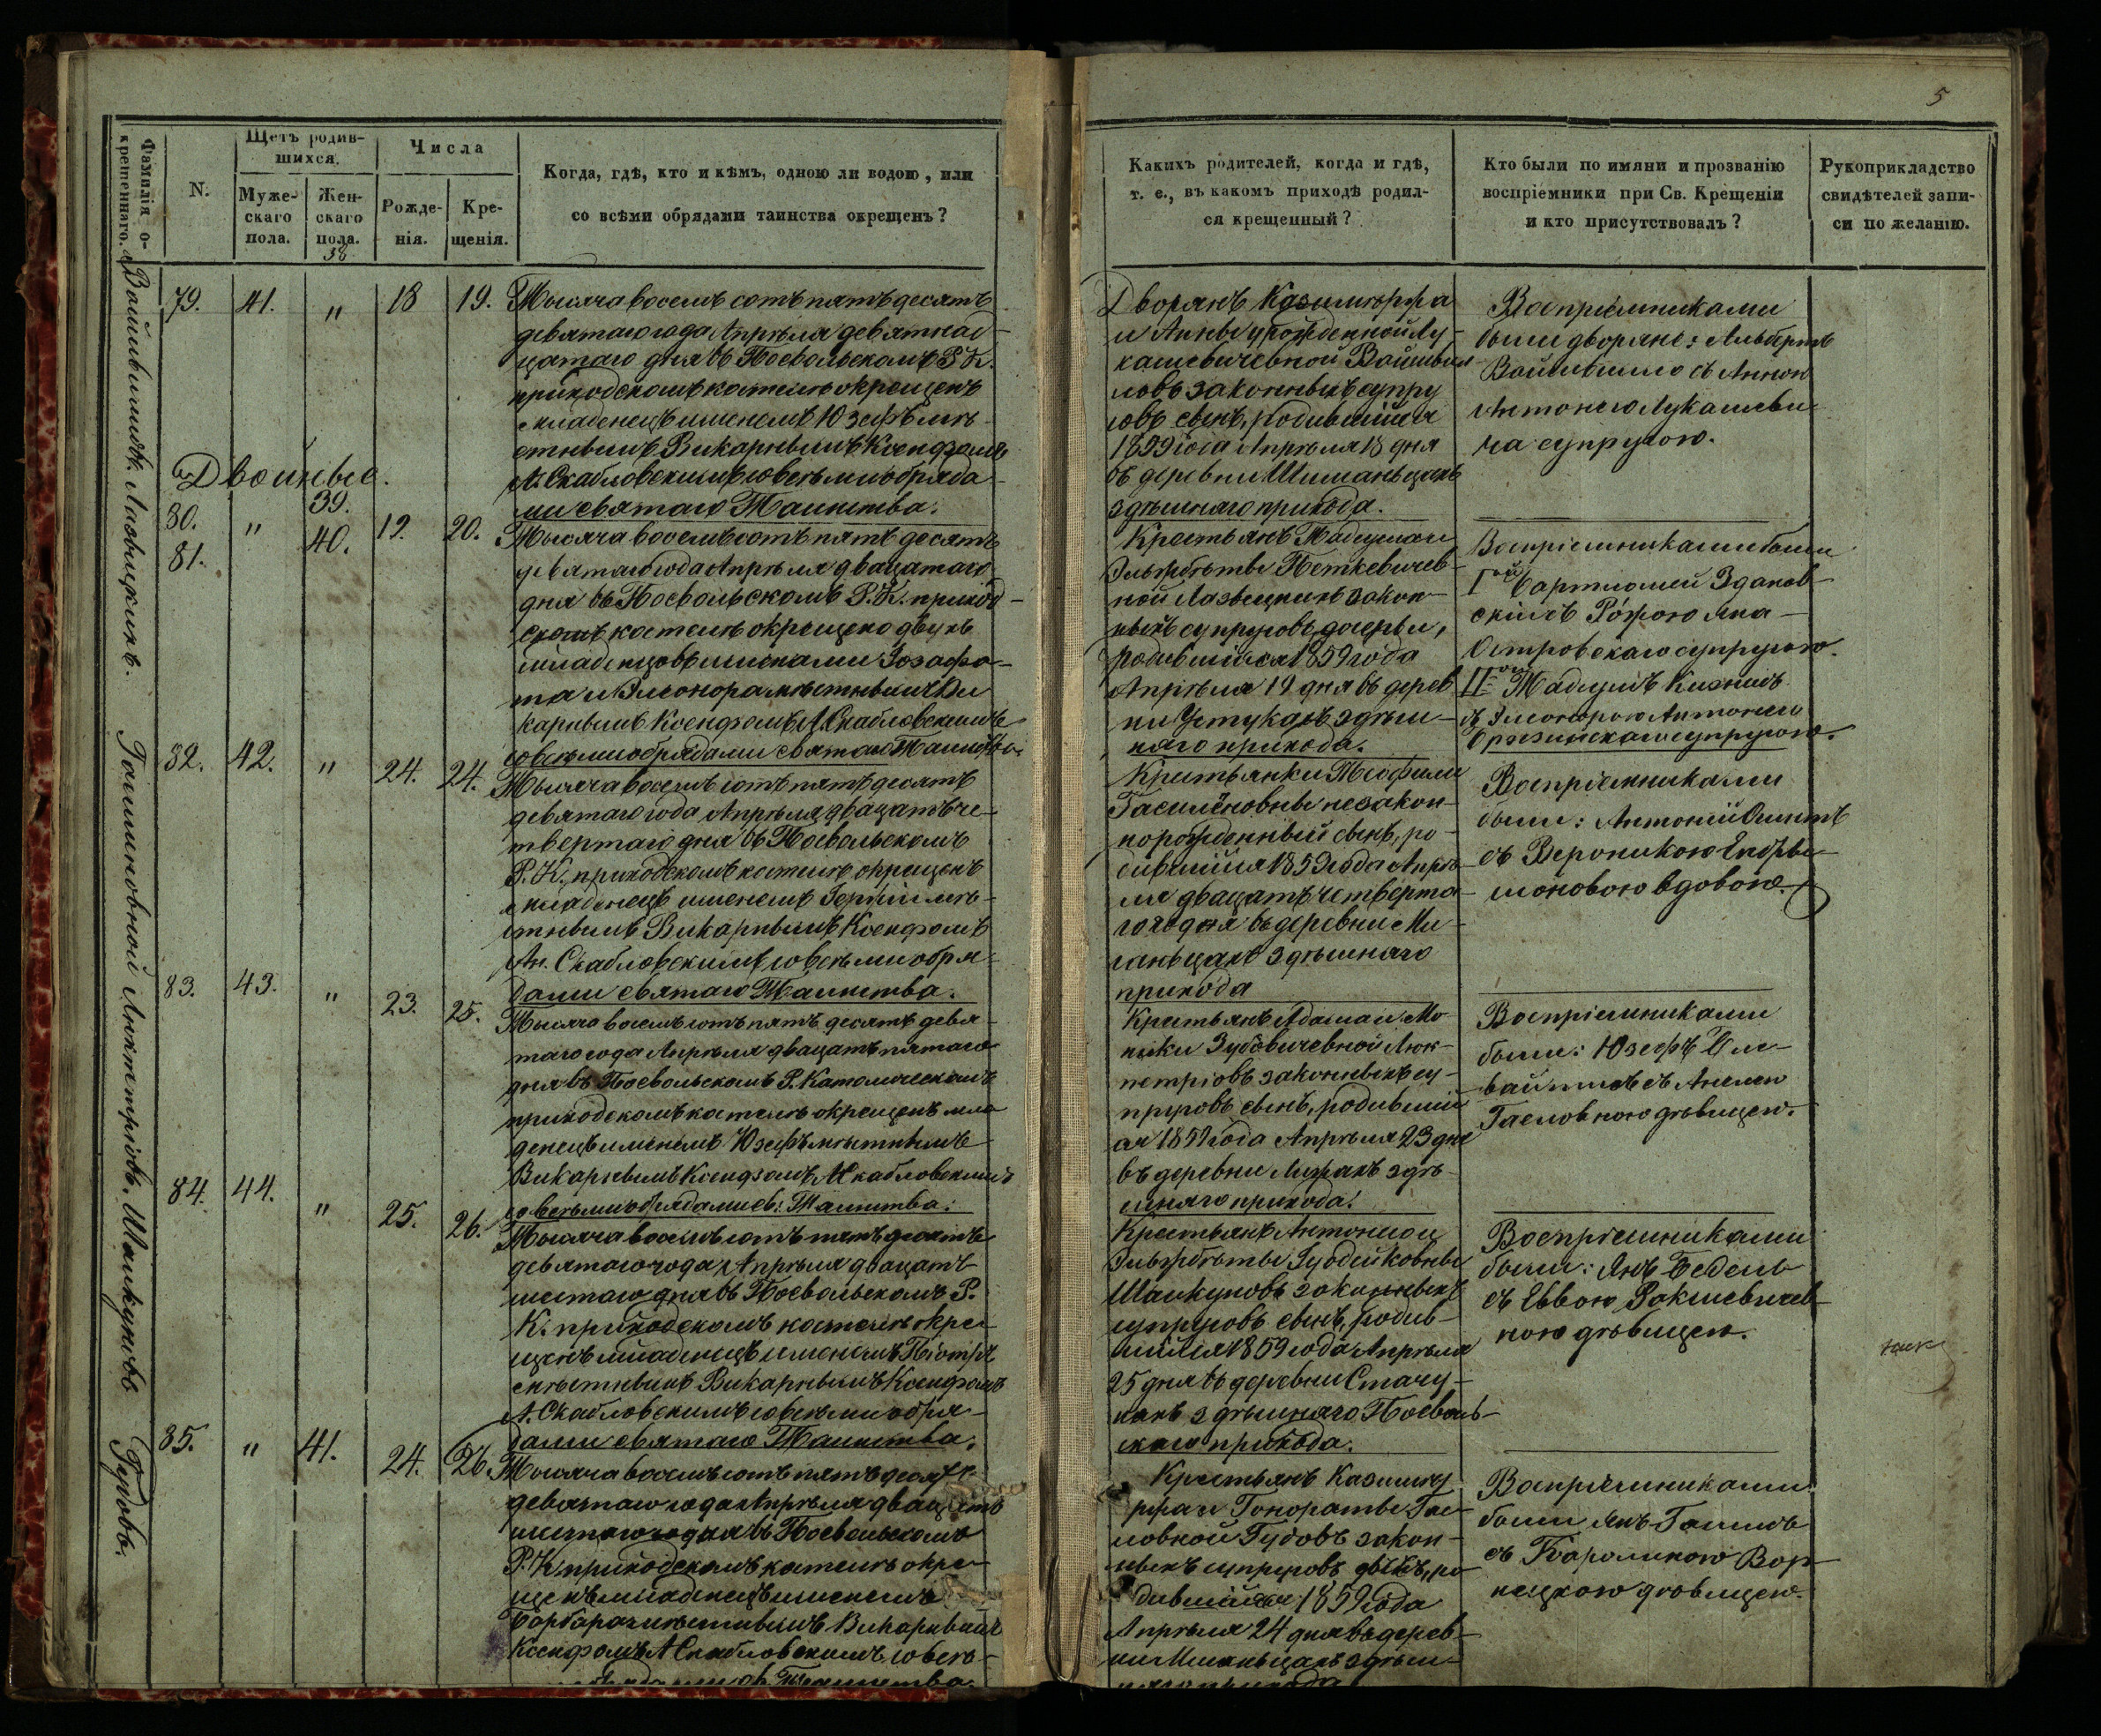 5
Фамилія о-
крещеннаго.
N.
Щетъ родив-
шихся.
Муже-
скаго
пола.
Жен-
скаго
пола.
38
Числа
Рожде-
нія.
Кре-
щенія.
Когда, гдѣ, кто и кѣмъ, одною ли водою, или
со всѣми обрядами таинства окрещенъ?
Каких​ъ родителей, когда и гдѣ,
т. е., въ какомъ приходѣ родил-
ся крещенный?
Кто были по имяни и прозванію
воспріемники при Св. Крещеніи
и кто присутствовалъ?
Рукоприкладство
свидѣтелей запи-
си по желанію.
79. 41. " 18 19.
Тысяча восемъ сотъ пятъ десятъ
девятаго года Апрѣля девятнад-
цатаго дня въ Посвольскомъ Р. К.
приходскомъ костелѣ окрещенъ
младенецъ именемъ Юзефъ мѣ-
стнымъ Викарнымъ Ксендзомъ
А. Скабловскимъ со всѣми обряда-
ми святаго Таинства.
Дворянъ Казимѣржа
и Анны урожденной Лу-
кашевичевной Войшвил-
ловъ законныхъ супру
говъ сынъ, родившійся
1859 года Апрѣля 18 дня
въ деревни Шиманьцахъ
здѣшняго прихода.
Воспріемниками
были дворяне: Альбертъ
Войшвилло съ Анною
Антонего Лукашеви-
ча супругою.
Двойные.
80. " 39. 19. 20.
81. 40.
Тысяча восемъ сотъ пятъ десятъ
девятаго года Апрѣля двацатаго
дня въ Посвольскомъ Р. К. приход-
скомъ костелѣ окрещено двухъ
младенцовъ именами Іозафа-
та и Элеонора мѣстнымъ Ви
карнымъ Ксендзомъ А. Скабловскимъ
со всѣми обрядами святаго Таинства.
Крестьянъ Тадеуша и
Эльжбѣты Петкевичев-
ной Лазвецкихъ закон-
ныхъ супруговъ дочерьи,
родившійся 1859 года
Апрѣля 19 дня въ дерев
ни Устукахъ здѣш-
няго прихода.
Воспріемниками были
I ой Бартломей Зданов-
скій съ Рожою Яна
Островскаго супругою.
II ой Тадеушъ
съ Элеонорою Антонего
супругою.
82. 42. " 24. 24.
Тысяча восемъ сотъ пятъ десятъ
девятаго года Апрѣля двацатъ че-
твертаго дня въ Посвольскомъ
Р. К. приходскомъ костелѣ окрещенъ
младенецъ именемъ Гержій мѣ-
стнымъ Викарнымъ Ксендзомъ
Ан. Скабловскимъ со всѣми обря-
дами святаго Таинства.
Крестьянки Теофили
незакон-
норожденный сынъ, ро-
дившійся 1859 года Апрѣ-
ля двацатъ четверта-
го дня въ деревни Ми-
ганьцахъ здѣшняго
прихода
Воспріемниками
были: Антоній
съ Вероникою
вдовою.
83. 43. " 23. 25.
Тысяча восемъ сотъ пятъ десятъ девя-
таго года Апрѣля двацатъ пятаго
дня въ Посвольскомъ Р. Католическомъ
приходскомъ костелѣ окрещенъ мла
денецъ именемъ Юзефъ мѣстнымъ
Викарнымъ Ксендзомъ А Скабловскимъ
со всѣми обрядами св: Таинства:
Крестьянъ Адама и Мо-
ники Зубовичевной Люк-
петріовъ законныхъ су-
пруговъ сынъ, родивший
ся 1859 года Апрѣля 23 дня
въ деревни здѣ-
шняго прихода.
Воспріемниками
были: Юзефъ
съ Анелею
дѣвицею.
84. 44. " 25. 26.
Тысяча восемъ сотъ пятъ десятъ
девятаго года Апрѣля двацатъ
шестаго дня въ Посвольскомъ Р.
К. приходскомъ костелѣ окре-
щенъ младенецъ именемъ Піотръ
мѣстнымъ Викарнымъ Ксендзомъ
А. Скабловскимъ со всѣми обря-
дами святаго Таинства.
Крестьянъ Антония и
Эльжбѣты
Шалкуновъ законныхъ
супруговъ сынъ, родив-
шійся 1859 года Апрѣля
25 дня въ деревни Стачу-
нахъ здѣшняго Посволь-
скаго прихода.
Воспріемниками
были: Янъ Бедель
съ Евою
ною дѣвицею.
85. " 41. 24. 26.
Тысяча восемъ сотъ пятъ десятъ
девятаго года Апрѣля двацатъ
шестаго дня въ Посвольскомъ
Р. К. приходскомъ костелѣ окре-
щенъ младенецъ именемъ
Барбара мѣстнымъ Викарнымъ
Ксендзомъ А Скабловскимъ со всѣ-
Таинства
Крестьянъ Казимѣ-
ржа и Гонораты Гас-
ловной Гудовъ закон-
ныхъ супруговъ ро
дившійся 1859 года
Апрѣля 24 дня въ дерев-
ни здѣш-
няго прихода
Воспріемниками
были Янъ
съ Каролиною Вор-
нецкою дѣвицею.
Войшвилловъ. Лазвицкихъ. Люкпетріовъ. Шалкуновъ Гудовъ.